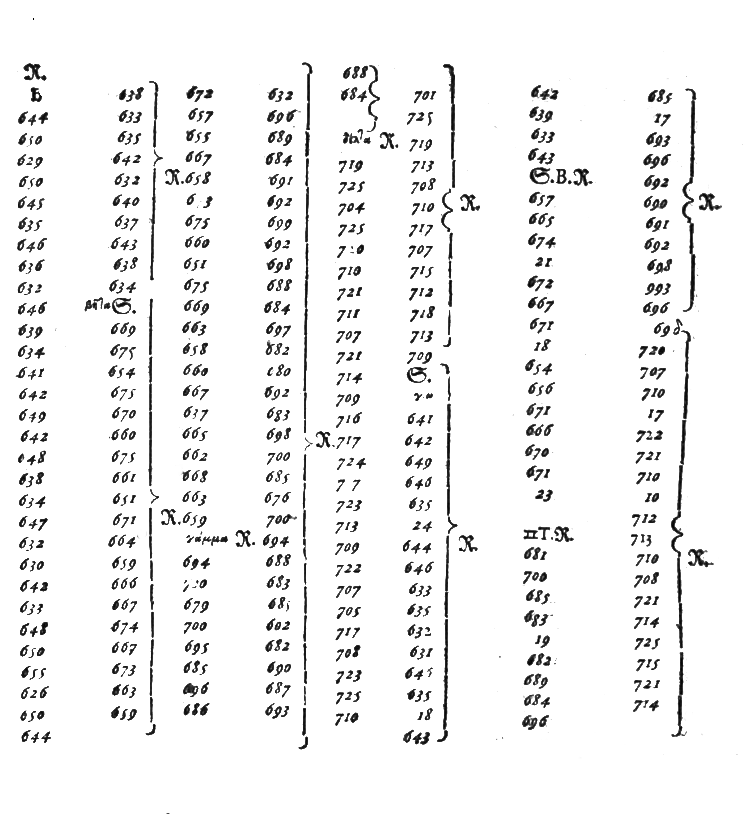 R.
b
644
650
629
650
645
635
646
636
632
646
639
634
641
642
649
642
648
638
634
647
632
630
642
633
648
650
655
626
650
644
638
633
635
642
632
640
637
643
638
634
βῆτα S.
669
675
654
675
670
660
675
661
651
671
664
659
666
667
674
667
673
663
659
R.
R.
672
657
655
667
658
675
660
651
675
669
663
658
660
667
637
665
662
668
663
659
γάμμα R.
694
679
700
695
685
696
686
632
696
689
684
691
692
699
692
698
688
684
697
682
680
692
683
698
700
685
676
700
694
688
683
685
692
682
690
687
693
R.
688
684
δέλτα R.
719
725
704
725
710
721
711
707
721
714
709
716
717
724
723
713
709
722
707
705
717
708
723
725
710
701
725
719
713
708
710
717
707
715
712
718
713
709
S.
641
642
649
646
635
24
644
646
633
635
632
631
645
635
18
643
R.
R.
642
639
633
643
S.B.R.
657
665
674
21
672
667
671
18
654
656
671
666
670
671
23
IIT.R.
681
700
685
683
19
682
689
684
696
685
17
693
696
692
690
691
692
698
993
696
69
δ
720
707
710
17
722
721
710
10
712
713
710
708
721
714
725
715
721
714
R.
R.